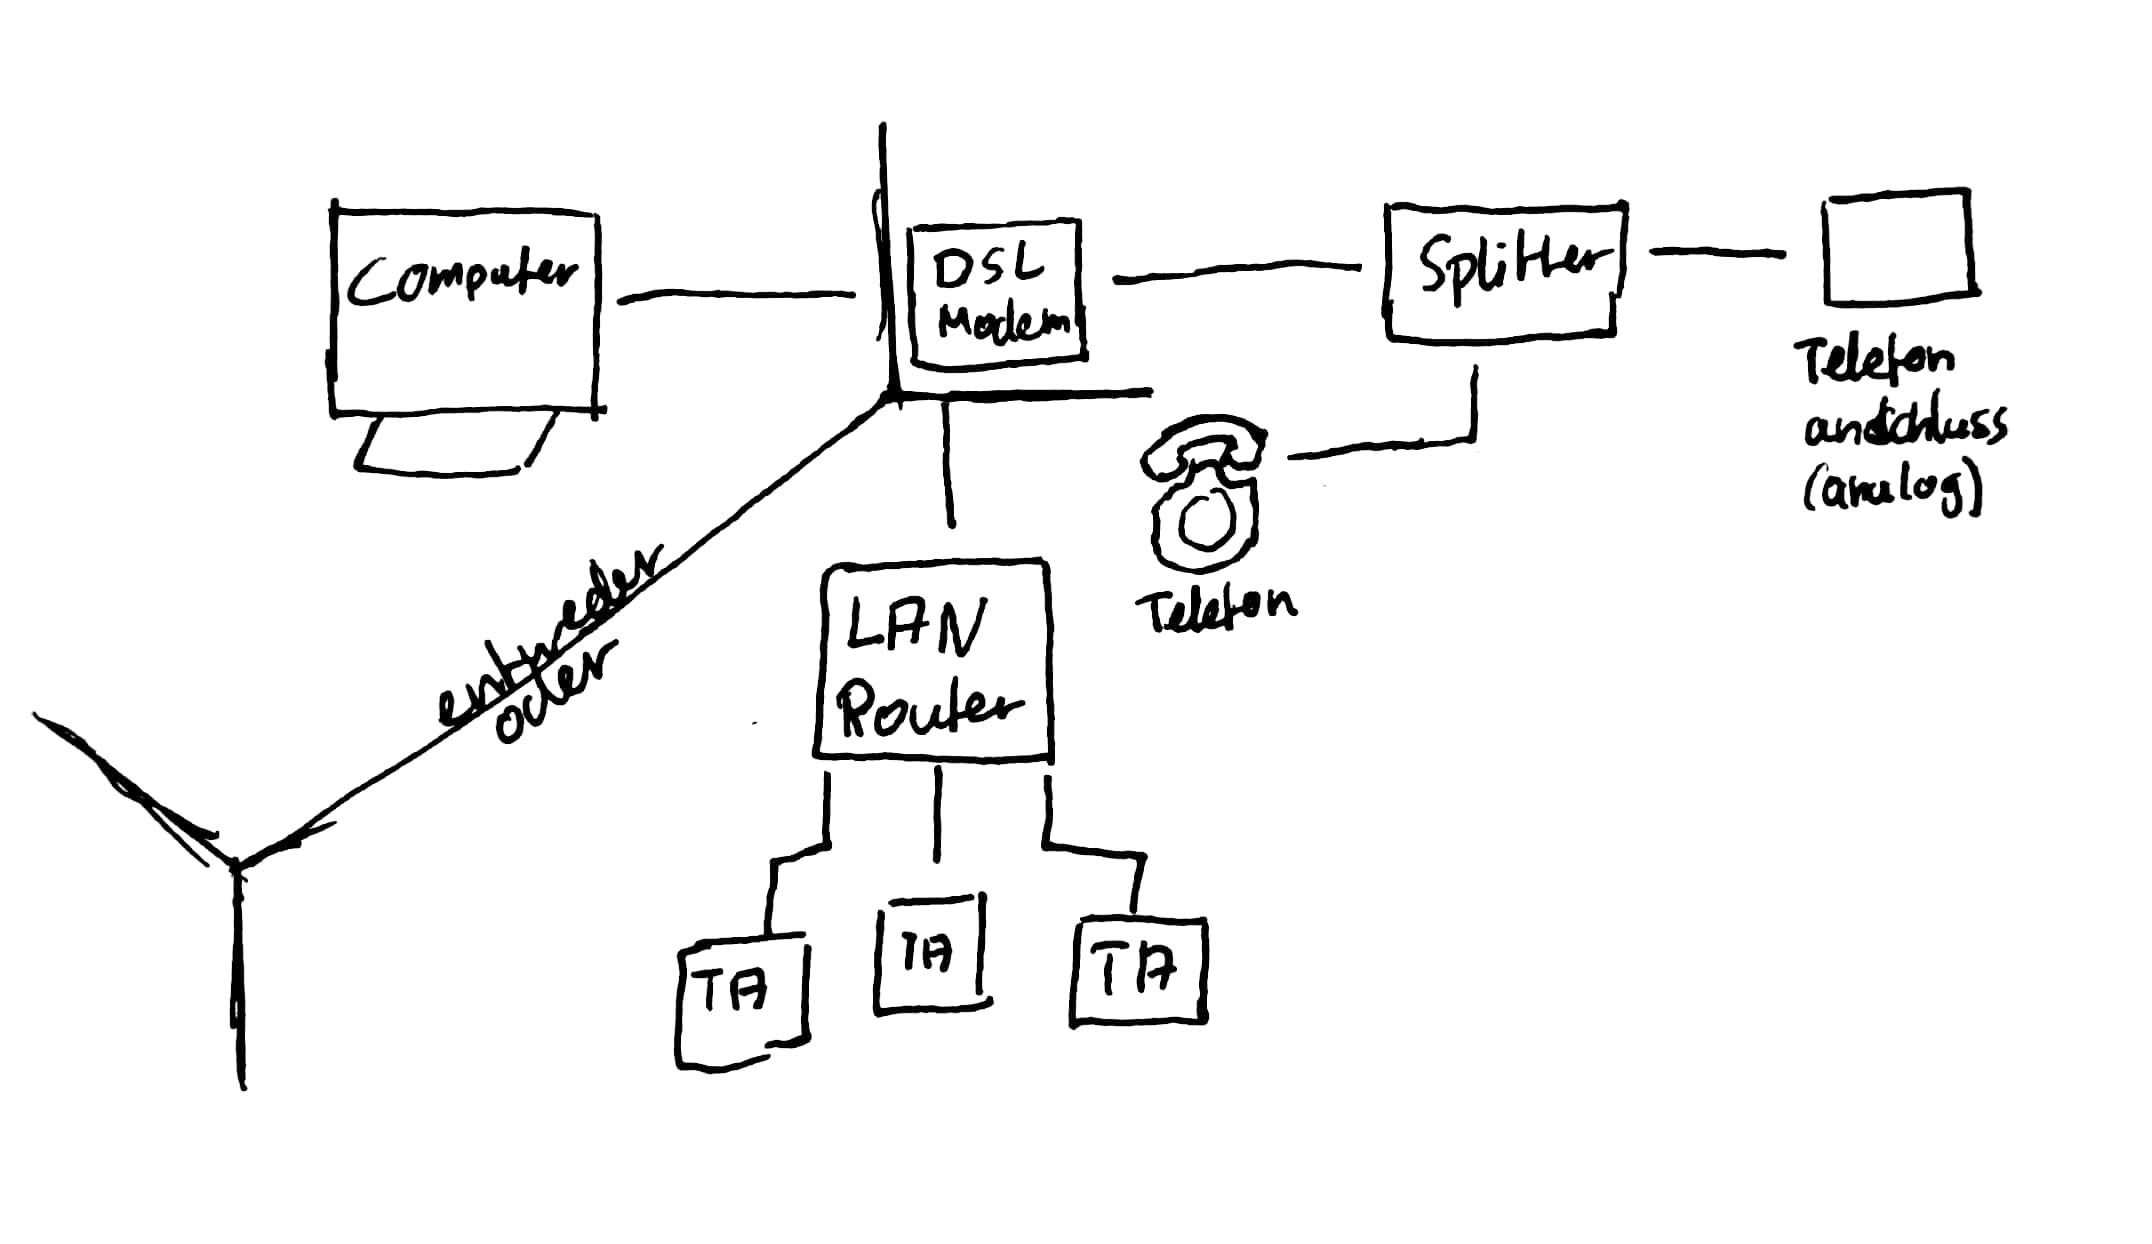 Computer
DSL
Modem
Splitter
Telefon
anschluss
(analog)
Telefon
entweder
oder
LAN
Router
TA
TA
TA